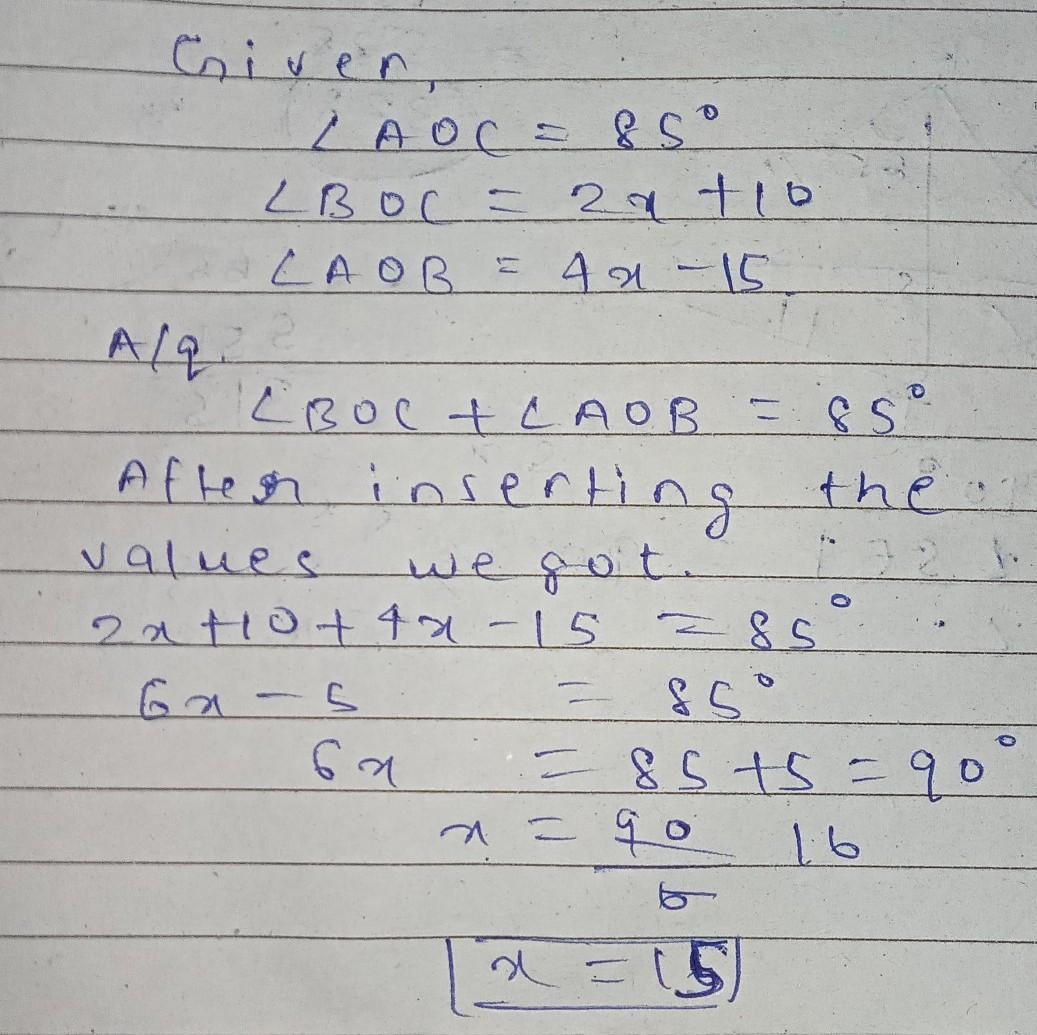 Given,
∠AOC = 85°
∠BOC = 2x + 10
∠AOB = 4x - 15
A/q.
∠BOC + ∠AOB = 85°
After inserting the
values we got.
2x + 10 + 4x - 15 = 85°
6x - 5 = 85°
6x = 85 + 5 = 90°
x = 90/6 16
x = 15